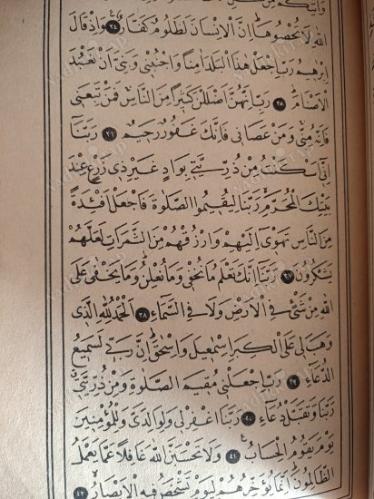 اللهِ لَا تُحْصُوهَا اِنَّ الْاِنْسَانَ لَظَلُومٌ كَفَّارٌ ﴿٣٤﴾ وَاِذْ قَالَ
اِبْرٰهِيمُ رَبِّ اجْعَلْ هٰذَا الْبَلَدَ اٰمِنًا وَاجْنُبْنِى وَبَنِىَّ اَنْ نَعْبُدَ
الْاَصْنَامَ ﴿٣٥﴾ رَبِّ اِنَّهُنَّ اَضْلَلْنَ كَثِيرًا مِنَ النَّاسِ فَمَنْ تَبِعَنِى
فَاِنَّهُ مِنِّى وَمَنْ عَصَانِى فَاِنَّكَ غَفُورٌ رَحِيمٌ ﴿٣٦﴾ رَبَّنَا
اِنِّى اَسْكَنْتُ مِنْ ذُرِّيَّتِى بِوَادٍ غَيْرِ ذِى زَرْعٍ عِنْدَ
بَيْتِكَ الْمُحَرَّمِ رَبَّنَا لِيُقِيمُوا الصَّلٰوةَ فَاجْعَلْ اَفْئِدَةً
مِنَ النَّاسِ تَهْوِى اِلَيْهِمْ وَارْزُقْهُمْ مِنَ الثَّمَرَاتِ لَعَلَّهُمْ
يَشْكُرُونَ ﴿٣٧﴾ رَبَّنَا اِنَّكَ تَعْلَمُ مَا نُخْفِى وَمَا نُعْلِنُ وَمَا يَخْفٰى عَلَى
اللهِ مِنْ شَىْءٍ فِى الْاَرْضِ وَلَا فِى السَّمَاءِ ﴿٣٨﴾ اَلْحَمْدُ لِلّٰهِ الَّذِى
وَهَبَ لِى عَلَى الْكِبَرِ اِسْمٰعِيلَ وَاِسْحٰقَ اِنَّ رَبِّى لَسَمِيعُ
الدُّعَاءِ ﴿٣٩﴾ رَبِّ اجْعَلْنِى مُقِيمَ الصَّلٰوةِ وَمِنْ ذُرِّيَّتِى
رَبَّنَا وَتَقَبَّلْ دُعَاءِ ﴿٤٠﴾ رَبَّنَا اغْفِرْ لِى وَلِوَالِدَىَّ وَلِلْمُؤْمِنِينَ
يَوْمَ يَقُومُ الْحِسَابُ ﴿٤١﴾ وَلَا تَحْسَبَنَّ اللهَ غَافِلًا عَمَّا يَعْمَلُ
الظَّالِمُونَ اِنَّمَا يُؤَخِّرُهُمْ لِيَوْمٍ تَشْخَصُ فِيهِ الْاَبْصَارُ ﴿٤٢﴾